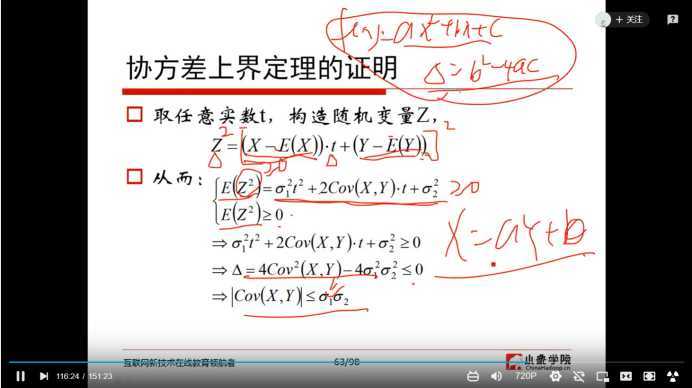 f(x)=ax²+bx+c
Δ=b²-4ac
+ 关注
协方差上界定理的证明
取任意实数t，构造随机变量Z，
Z=(X-E(X))·t+(Y-E(Y))
2
2
≥0
Δ
Δ
从而：
E(Z²)=σ₁²t²+2Cov(X,Y)·t+σ₂² ≥0
E(Z²)≥0
⇒σ₁²t²+2Cov(X,Y)·t+σ₂²≥0
X=aY+b
⇒Δ=4Cov²(X,Y)-4σ₁²σ₂²≤0
⇒|Cov(X,Y)|≤σ₁σ₂
互联网新技术在线教育领航者
63/98
小象学院
ChinaHadoop.cn
116:24 / 151:23
720P